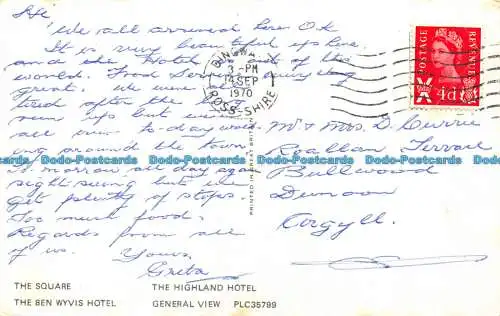 We all arrived here O.K
It is very beautiful up here
and the Hotel is out of this
world. From
great. We were a
tired after the long
run up but we
all was to-day
ing around the town
To morrow all day again
sight seeing but we
get plenty of stops.
Too much food.
Regards from all
of us. Yours.
Greta
3 - PM
14 SEP
1970
ROSS-SHIRE
POSTAGE
REVENUE
4d
Mr & Mrs. D. Currie
Terrace
Bullwood
Dunoon
Argyll.
PRINTED IN GREAT BRITAIN
THE SQUARE THE HIGHLAND HOTEL
THE BEN WYVIS HOTEL GENERAL VIEW PLC35789
Dodo-Postcards Dodo-Postcards Dodo-Postcards Dodo-Postcards Dodo-Postcards
Dodo-Postcards Dodo-Postcards Dodo-Postcards Dodo-Postcards Dodo-Postcards